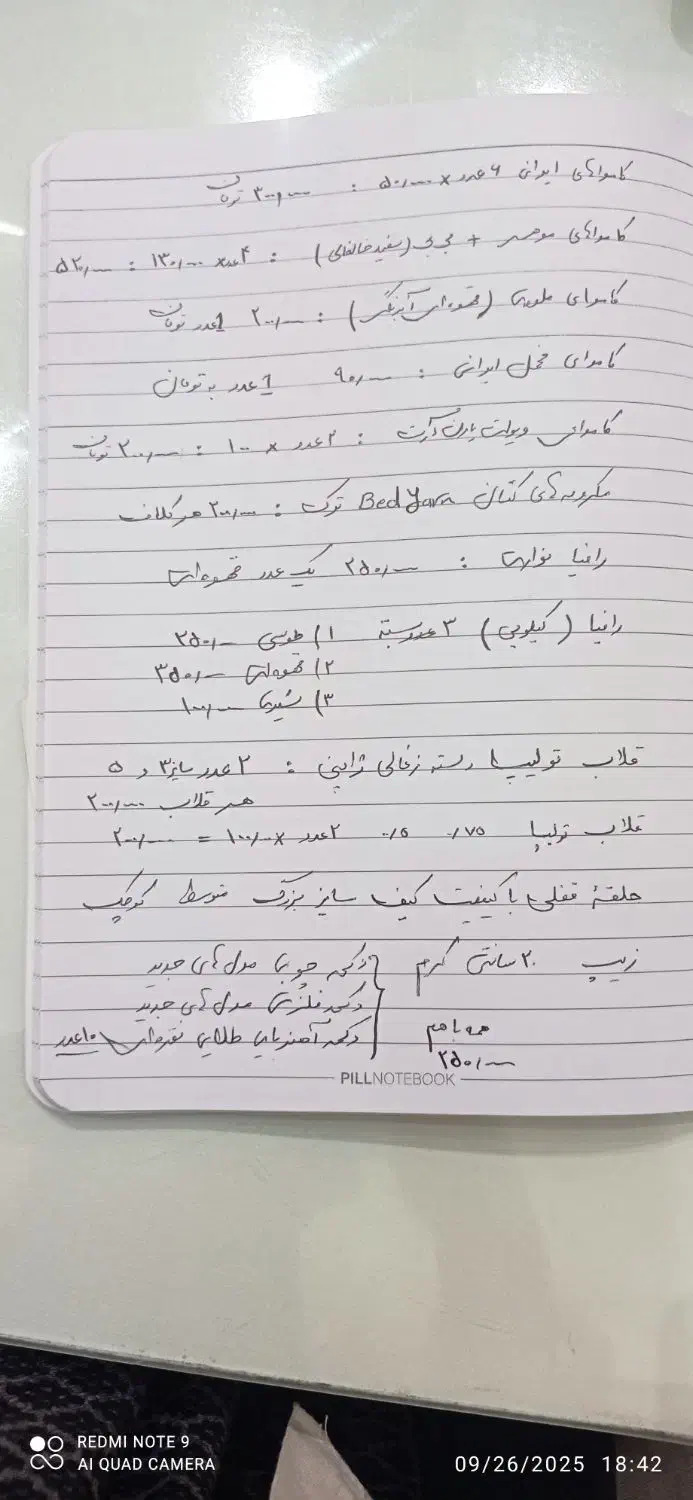 کامواهای ایرانی ۶ عدد × ۵۰/۰۰۰ : ۳۰۰/۰۰۰ تومان
کامواهای موهر + مچی (سفید خالخالی) : ۴ عدد × ۱۳۰/۰۰۰ : ۵۲۰/۰۰۰
کاموای ملودی (قهوه‌ای آبرنگ) : ۲۰۰/۰۰۰ 1 عدد تومان
کاموای مخمل ایرانی : ۹۰/۰۰۰ 1 عدد به تومان
کاموای ویولت یارن آرت : ۲ عدد × ۱۰۰ : ۲۰۰/۰۰۰ تومان
مکرومه‌های کتان Bed Yarn ترک : ۲۰۰/۰۰۰ هر کلاف
رافیا نواری : ۲۵۰/۰۰۰ یک عدد قهوه‌ای
رافیا (کیلویی) ۳ عدد بسته ۱) طوسی ۲۵۰/۰۰۰
۲) قهوه‌ای ۳۵۰/۰۰۰
۳) شیری ۱۰۰/۰۰۰
قلاب تولیپ دسته زغالی ژاپنی : ۲ عدد سایز ۳ و ۵
هر قلاب ۲۰۰/۰۰۰
قلاب تولیپ ۰/۷۵ ۰/۵ ۲ عدد × ۱۰۰/۰۰۰ = ۲۰۰/۰۰۰
حلقهٔ قفلی با کیفیت کیف سایز بزرگ متوسط کوچک
زیپ ۲۰ سانتی کرم
دکمه چوبی مدل‌های جدید
دکمه فلزی مدل‌های جدید
دکمه آهنربایی طلایی نقره‌ای ۱۰ عدد
همه با هم
۲۵۰/۰۰۰
PILLNOTEBOOK
REDMI NOTE 9
AI QUAD CAMERA
09/26/2025 18:42